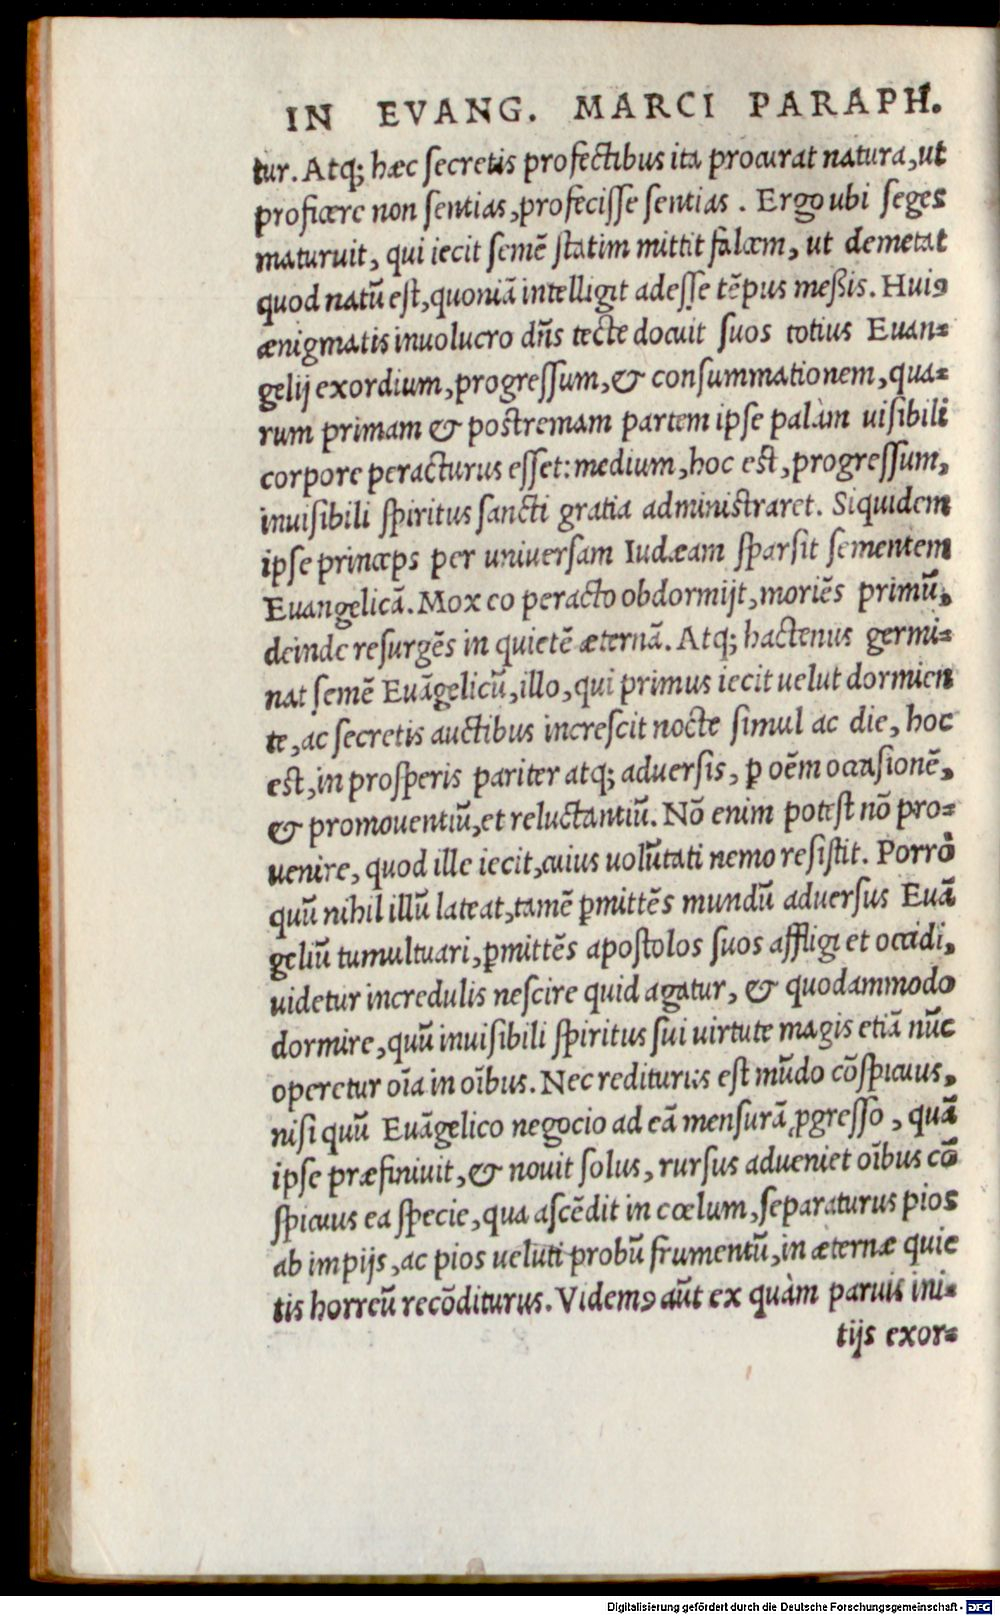 IN EVANG. MARCI PARAPH.
tur. Atq; hæc secretis profectibus ita procurat natura, ut
proficere non sentias, profecisse sentias. Ergo ubi seges
maturuit, qui iecit semē statim mittit falcem, ut demetat
quod natū est, quoniā intelligit adesse tēpus meßis. Huiꝰ
ænigmatis inuolucro dñs tecte docuit suos totius Euan=
gelij exordium, progressum, & consummationem, qua=
rum primam & postremam partem ipse palàm uisibili
corpore peracturus esset: medium, hoc est, progressum,
inuisibili spiritus sancti gratia administraret. Siquidem
ipse princeps per uniuersam Iudæam sparsit sementem
Euangelicā. Mox eo peracto obdormijt, moriēs primū,
deinde resurgēs in quietē æternā. Atq; hactenus germi=
nat semē Euāgelicū, illo, qui primus iecit uelut dormien
te, ac secretis auctibus increscit nocte simul ac die, hoc
est, in prosperis pariter atq; aduersis, ꝑ oēm occasionē,
& promouentiū, et reluctantiū. Nō enim potest nō pro=
uenire, quod ille iecit, cuius volūtati nemo resistit. Porrò
quū nihil illū lateat, tamē ꝑmittēs mundū aduersus Euā
geliū tumultuari, ꝑmittēs apostolos suos affligi et occidi,
uidetur incredulis nescire quid agatur, & quodammodo
dormire, quū inuisibili spiritus sui uirtute magis etiā nūc
operetur oīa in oībus. Nec rediturus est mūdo cōspicuus,
nisi quū Euāgelico negocio ad eā mensurā ꝓgresso, quā
ipse præfiniuit, & nouit solus, rursus adueniet oībus cō
spicuus ea specie, qua ascēdit in cœlum, separaturus pios
ab impijs, ac pios ueluti probū frumentū, in æternæ quie
tis horreū recōditurus. Videmꝰ aūt ex quàm paruis ini=
tijs exor=
Digitalisierung gefördert durch die Deutsche Forschungsgemeinschaft - DFG